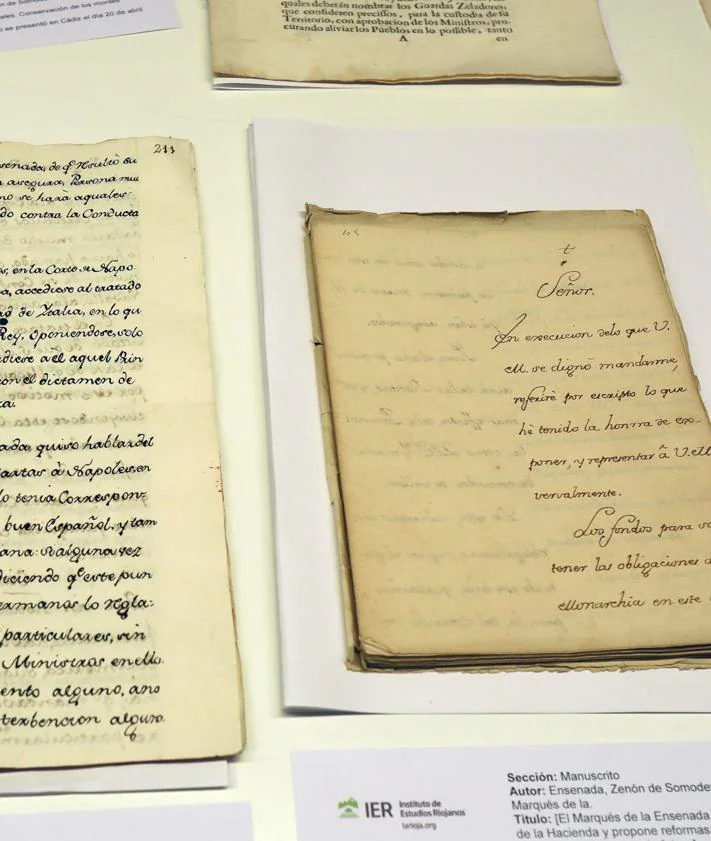 ales. Conservación de los montes
se presentó en Cádiz el día 20 de abril
quales deberán nombrar los Guardas Zeladores,
que consideren precisos, para la custodia de su
Territorio, con aprobacion de los Ministros, pro-
curando aliviar los Pueblos en lo possible, tanto
A en
211
senada, de qe resultò su
asegura, Persona mui
no se harà aquales-
do contra la Conducta
s, en la Corte de Napo
a, accediese al tratado
ad de Italia, en lo qu
Rey, Oponiendose, solo
diese a èl aquel Prin
con el dictamen de
ta.
ada, quiso hablar del
artas à Napoles, en
lo tenia Correspon-
buen Español, y tam
ana: si alguna vez
diciendo qe este pun
ermanas lo regla-
particulares, sin
Ministros en ello.
ento alguno, ano
terbencion alguna
45
t
Señor.
En execucion de lo que V.
M. se dignò mandarme,
referirè por escripto lo que
hè tenido la honrra de ex-
poner, y representar â V.M
vervalmente.
Los fondos para so
tener las obligaciones d
Monarchia en este
IER Instituto de
Estudios Riojanos
larioja.org
Sección: Manuscrito
Autor: Ensenada, Zenón de Somode
Marqués de la.
Título: [El Marqués de la Ensenada
de la Hacienda y propone reformas